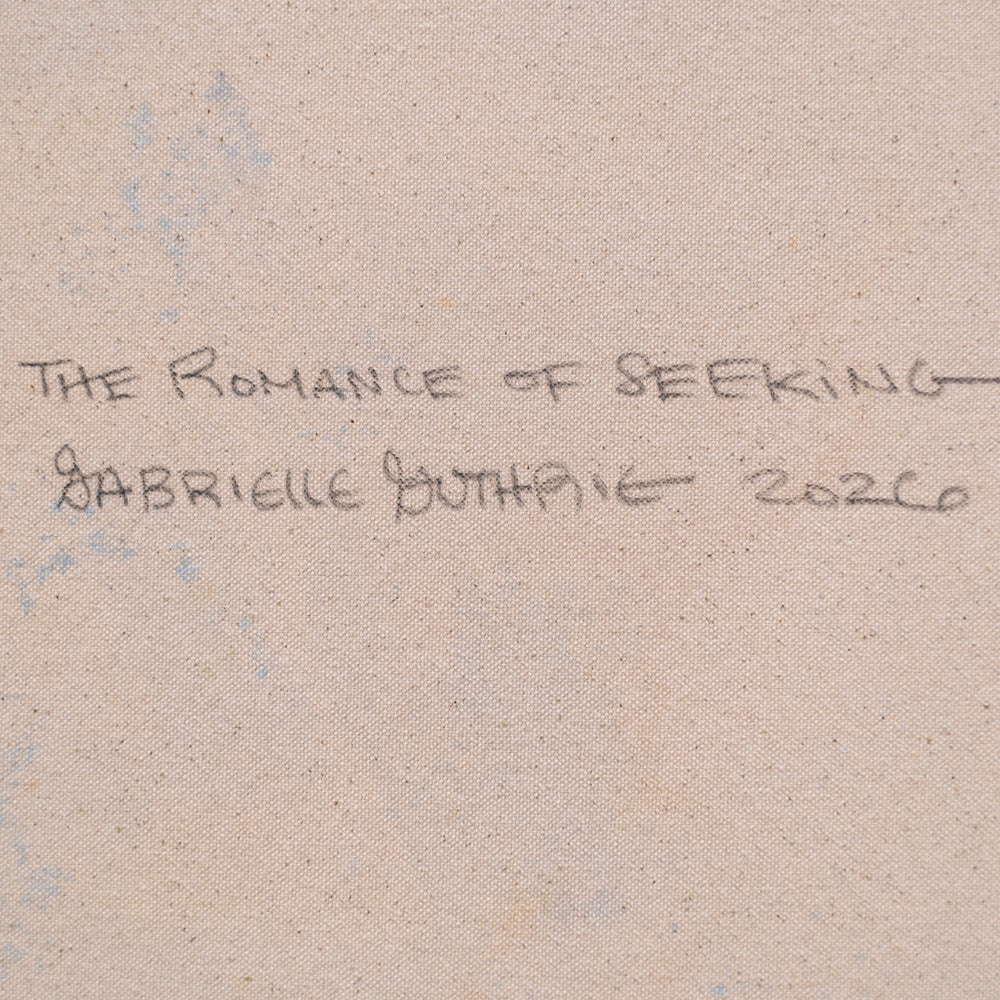 THE ROMANCE OF SEEKING
GABRIELLE GUTHRIE 2026